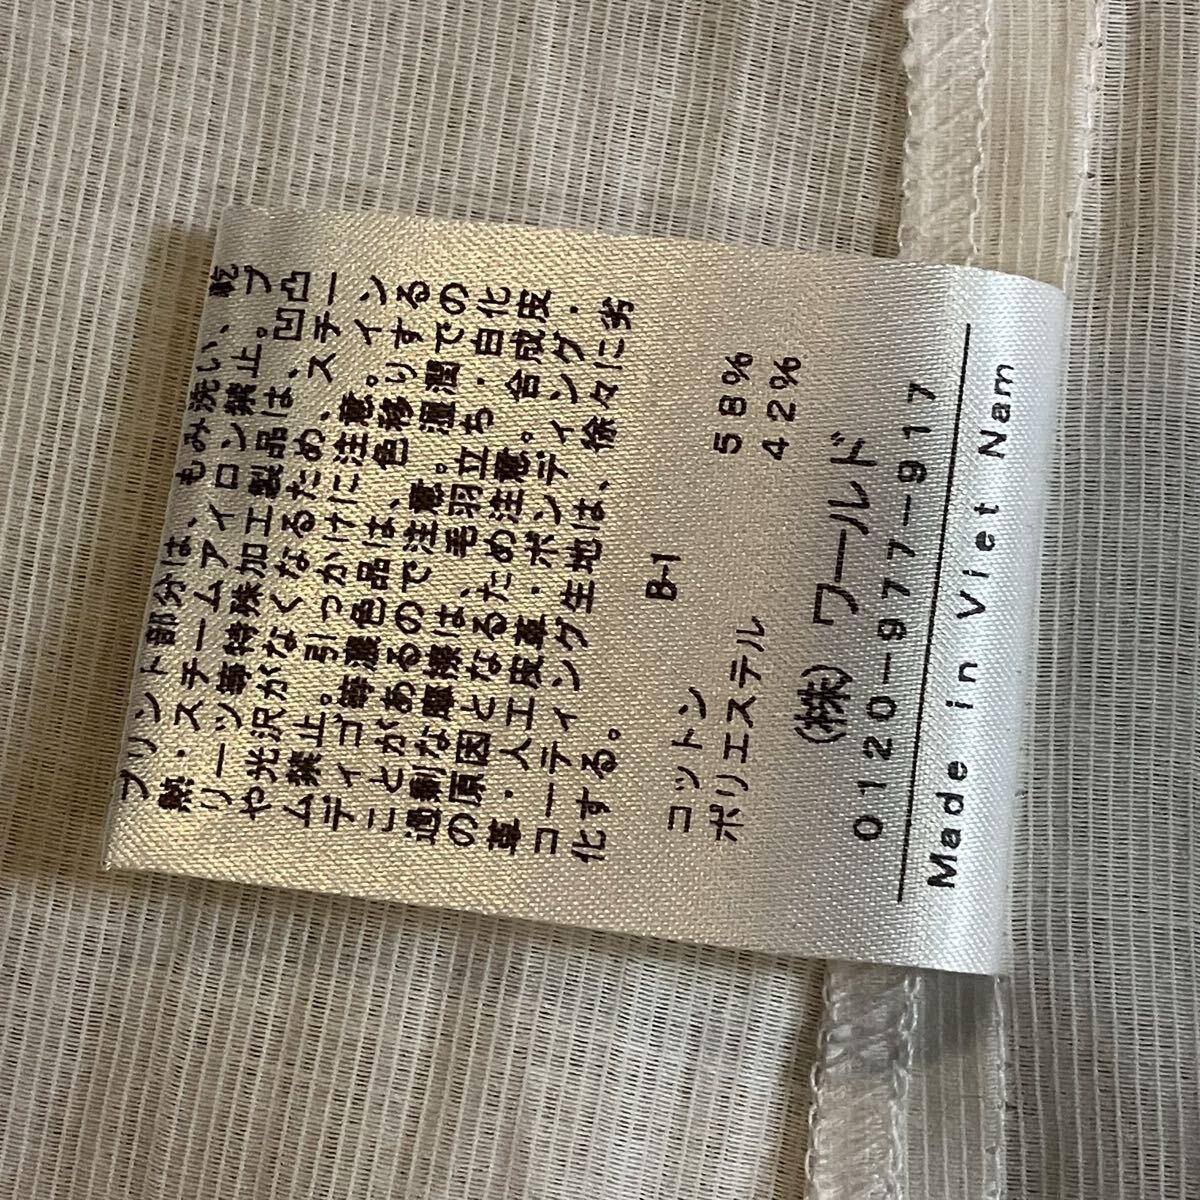 プリント部分は、もみ洗い、乾
熱・スチームアイロン禁止。プ
リーツ等特殊加工製品は、凹凸
や光沢がなくなるため、スチー
ム禁止。引っかけに注意。イン
ディゴ等濃色品は、色移りする
ことがあるので注意。湿潤での
過剰な摩擦は、毛羽立ち・白化
の原因となるため注意。合成皮
革・人工皮革・ボンディング・
コーティング生地は、徐々に劣
化する。
B-1
コットン 58%
ポリエステル 42%
(株) ワールド
0120-977-917
Made in Viet Nam